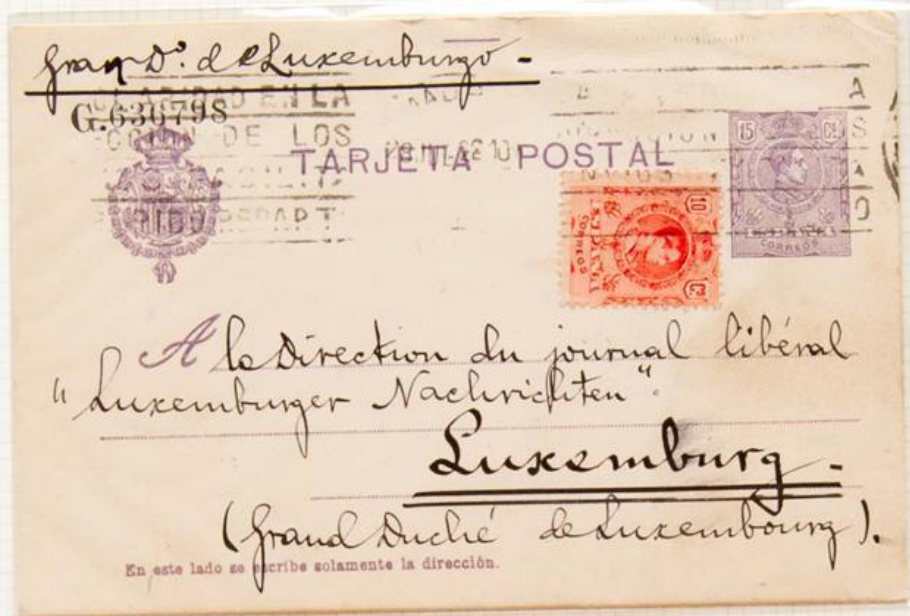 Gran D.º de Luxemburgo -
CLARIDAD EN LA
G.636798
DE LOS
TARJETA POSTAL
15 Cs.
10
CORREOS
CORREOS
A la Direction du journal libéral
"Luxemburger Nachrichten".
Luxemburg -
(Grand Duché de Luxembourg).
En este lado se escribe solamente la dirección.